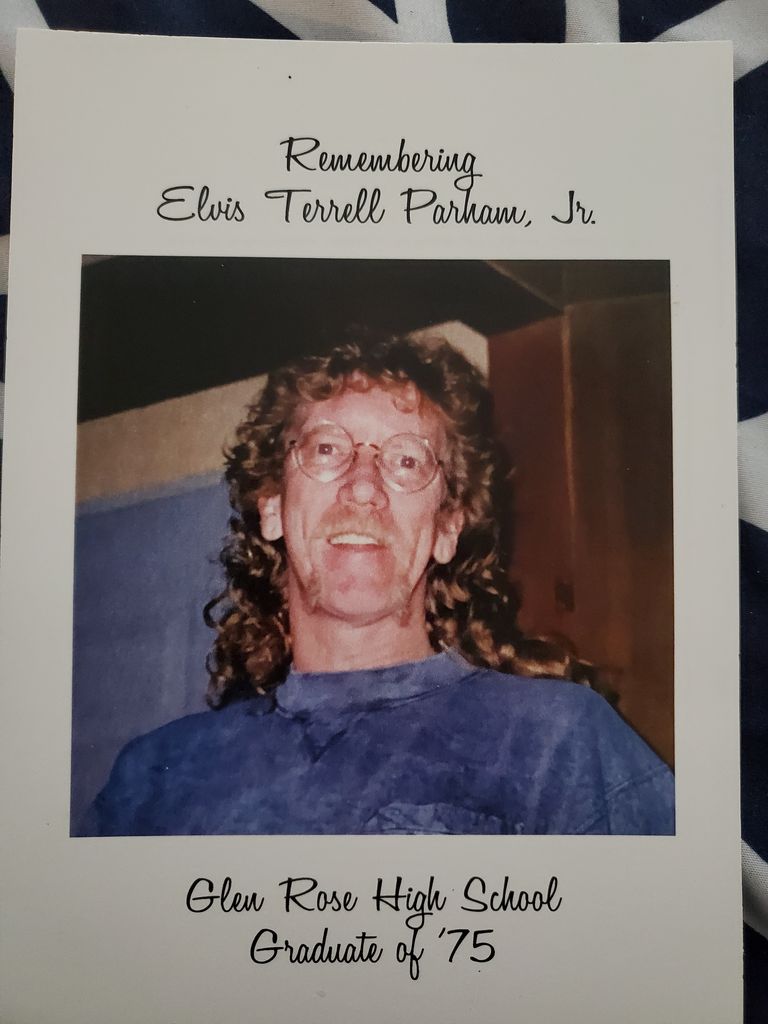 Remembering
Elvis Terrell Parham, Jr.
Glen Rose High School
Graduate of '75